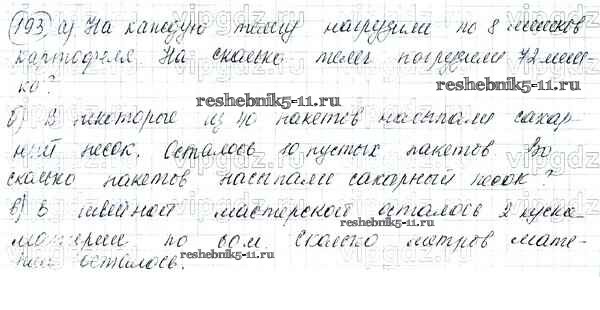 193 а) На каждую телегу нагрузили по 8 мешков
картофеля На сколько телег погрузили 72 меш-
ка?
reshebnik5-11.ru
б) В некоторые из 40 пакетов насыпали сахар-
ный песок. Осталось 10 пустых пакетов. Во
сколько пакетов насыпали сахарный песок?
в) В швейной мастерской осталось 2 куска
reshebnik5-11.ru
материи по 60м. Сколько метров мате-
рии осталось.
reshebnik5-11.ru